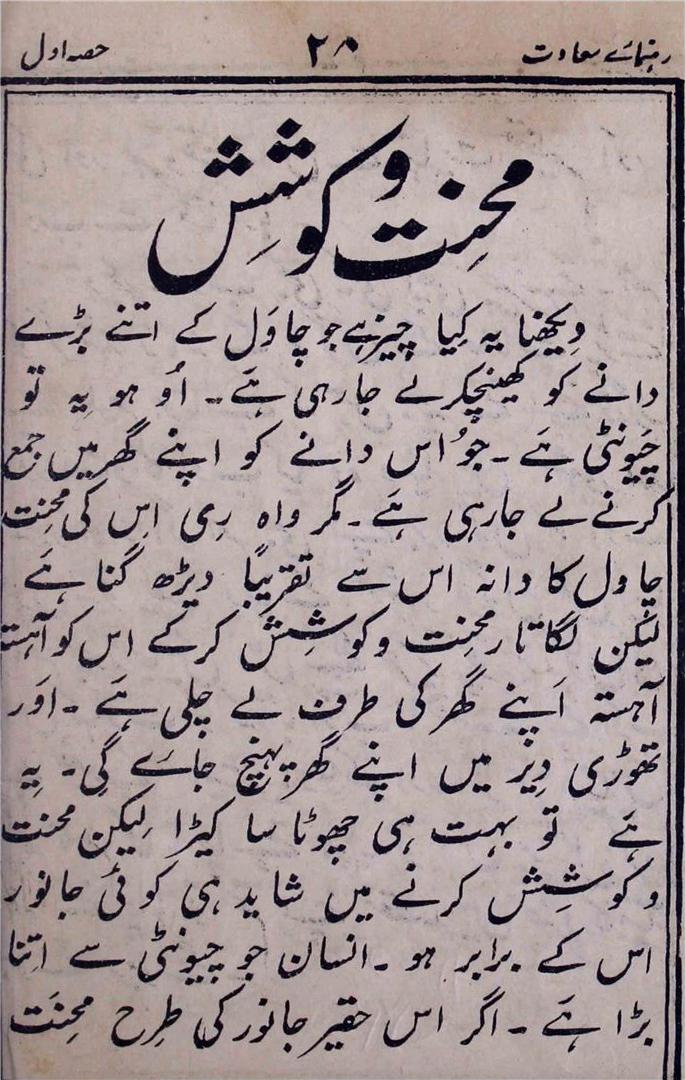 رہنمائے سعادت ۲۸ حصہ اول
محنت و کوشش
دیکھنا یہ کیا چیز ہے جو چاول کے اتنے بڑے
دانے کو کھینچکر لے جا رہی ہے ۔ اُو ہو یہ تو
چیونٹی ہے ۔ جو اُس دانے کو اپنے گھر میں جمع
کرنے لے جا رہی ہے ۔ مگر واہ ری اس کی محنت
چاول کا دانہ اس سے تقریباً دیڑھ گنا ہے
لیکن لگاتار محنت و کوشش کرکے اس کو آہستہ
آہستہ اپنے گھر کی طرف لے چلی ہے ۔ اور
تھوڑی دیر میں اپنے گھر پہنچ جائے گی ۔ یہ
ہے تو بہت ہی چھوٹا سا کیڑا لیکن محنت
و کوشش کرنے میں شاید ہی کوئی جانور
اس کے برابر ہو ۔ انسان جو چیونٹی سے اتنا
بڑا ہے ۔ اگر اس حقیر جانور کی طرح محنت